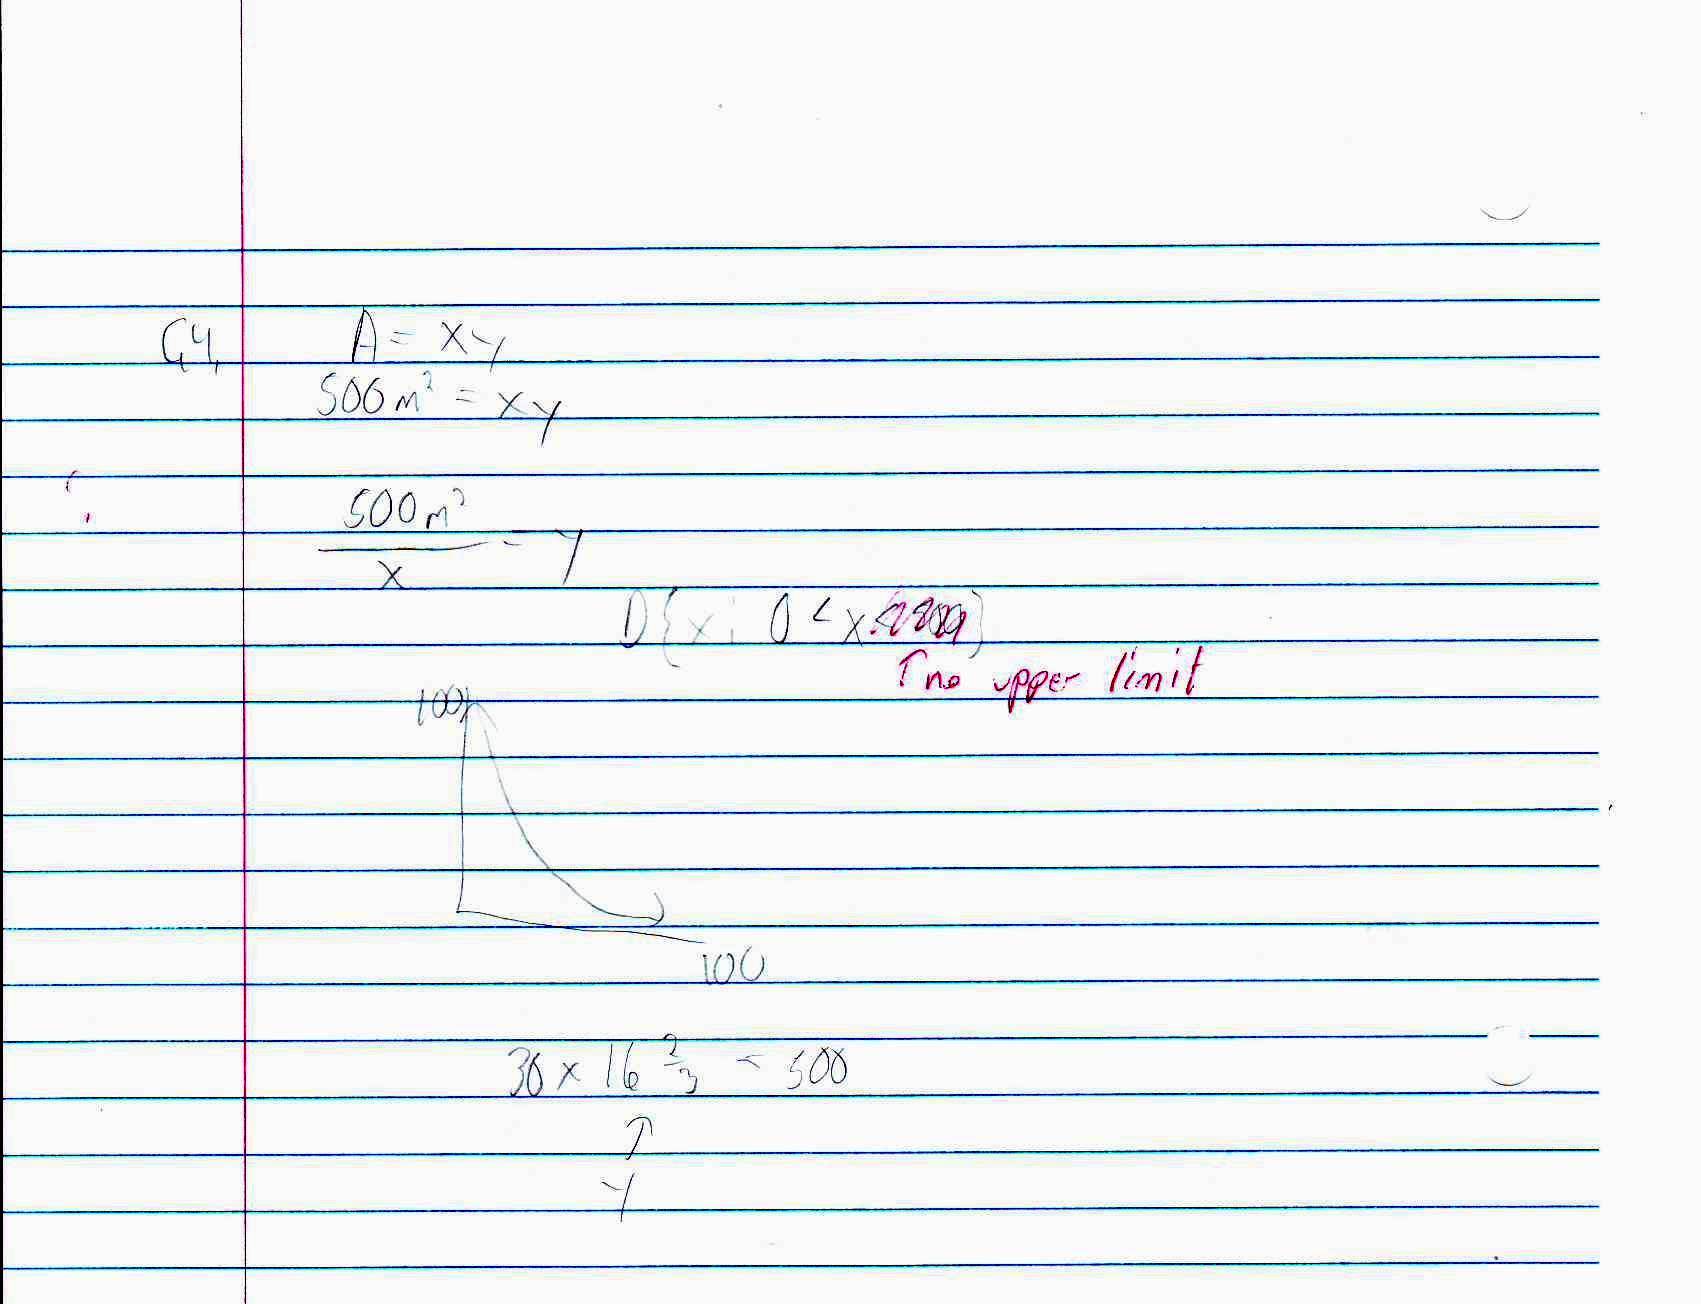 64. A = xy
500m² = xy
500m²
x
= y
D{x: 0 < x }
↑ no upper limit
100
100
30 x 16 2/3 = 500
↑
y